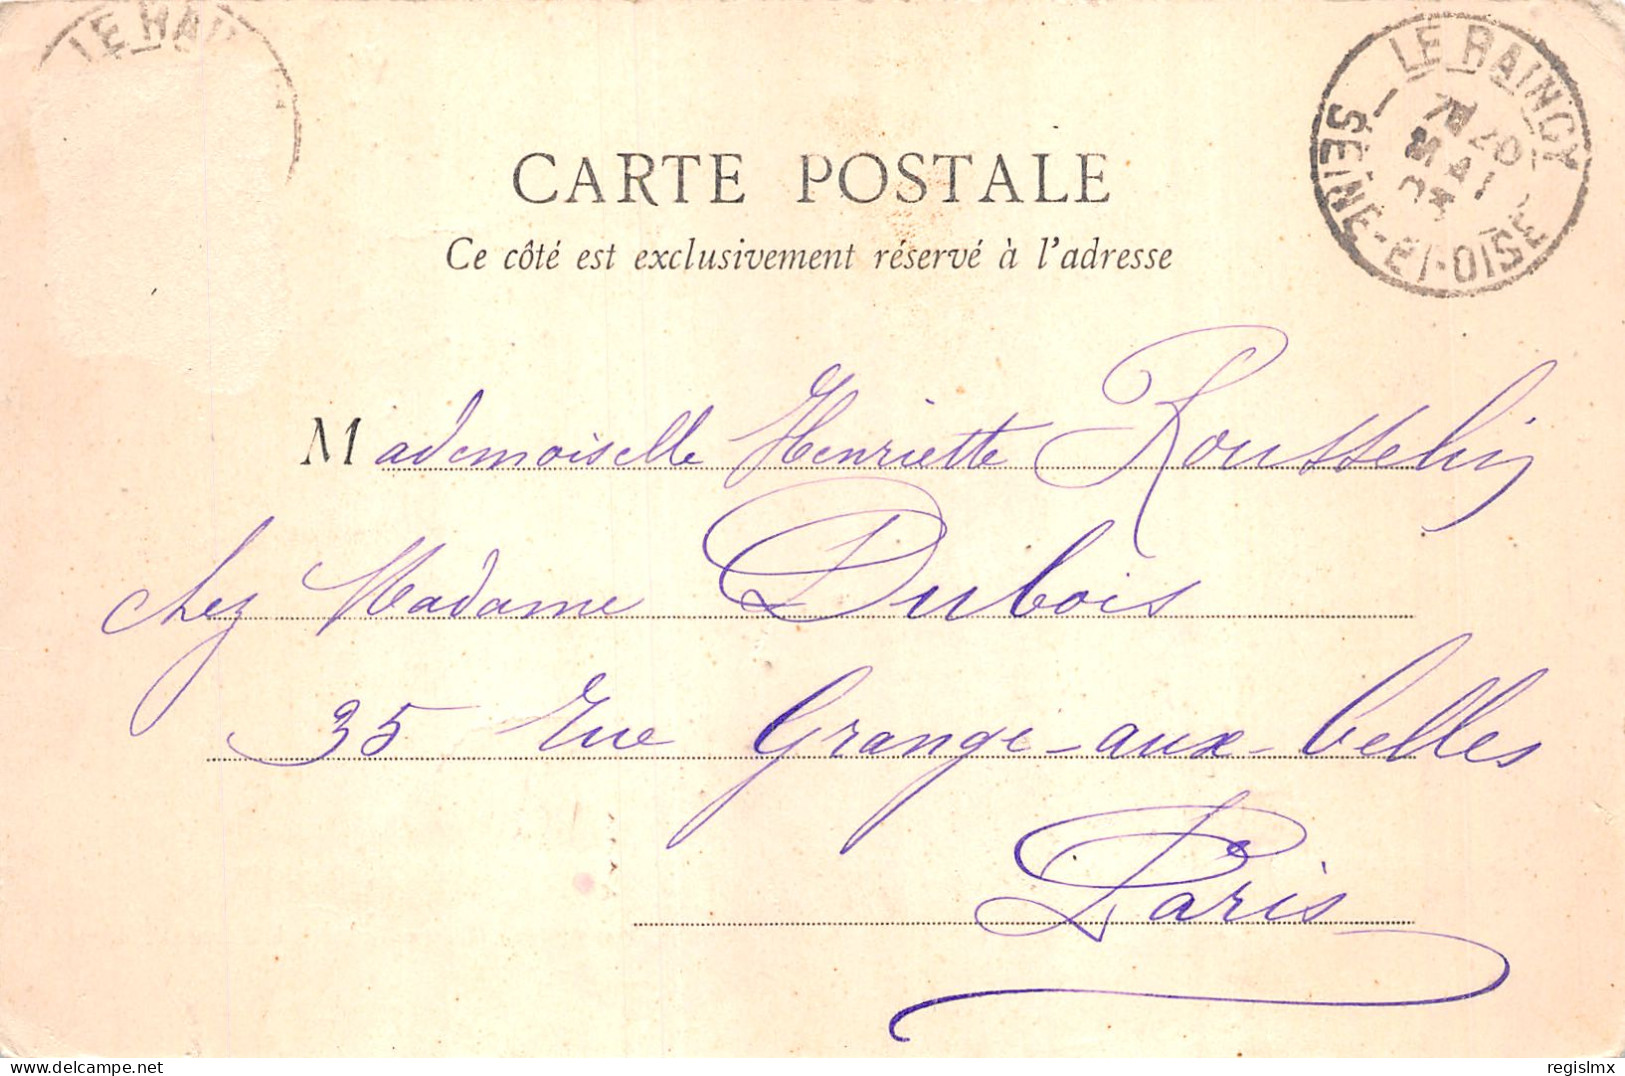 LE RAI
LE RAINCY
7E 20
MAI
03
SEINE-ET-OISE
CARTE POSTALE
Ce côté est exclusivement réservé à l'adresse
Mademoiselle Henriette Rousselin
chez Madame Dubois
35 Rue Grange-aux-belles
Paris
regislmx